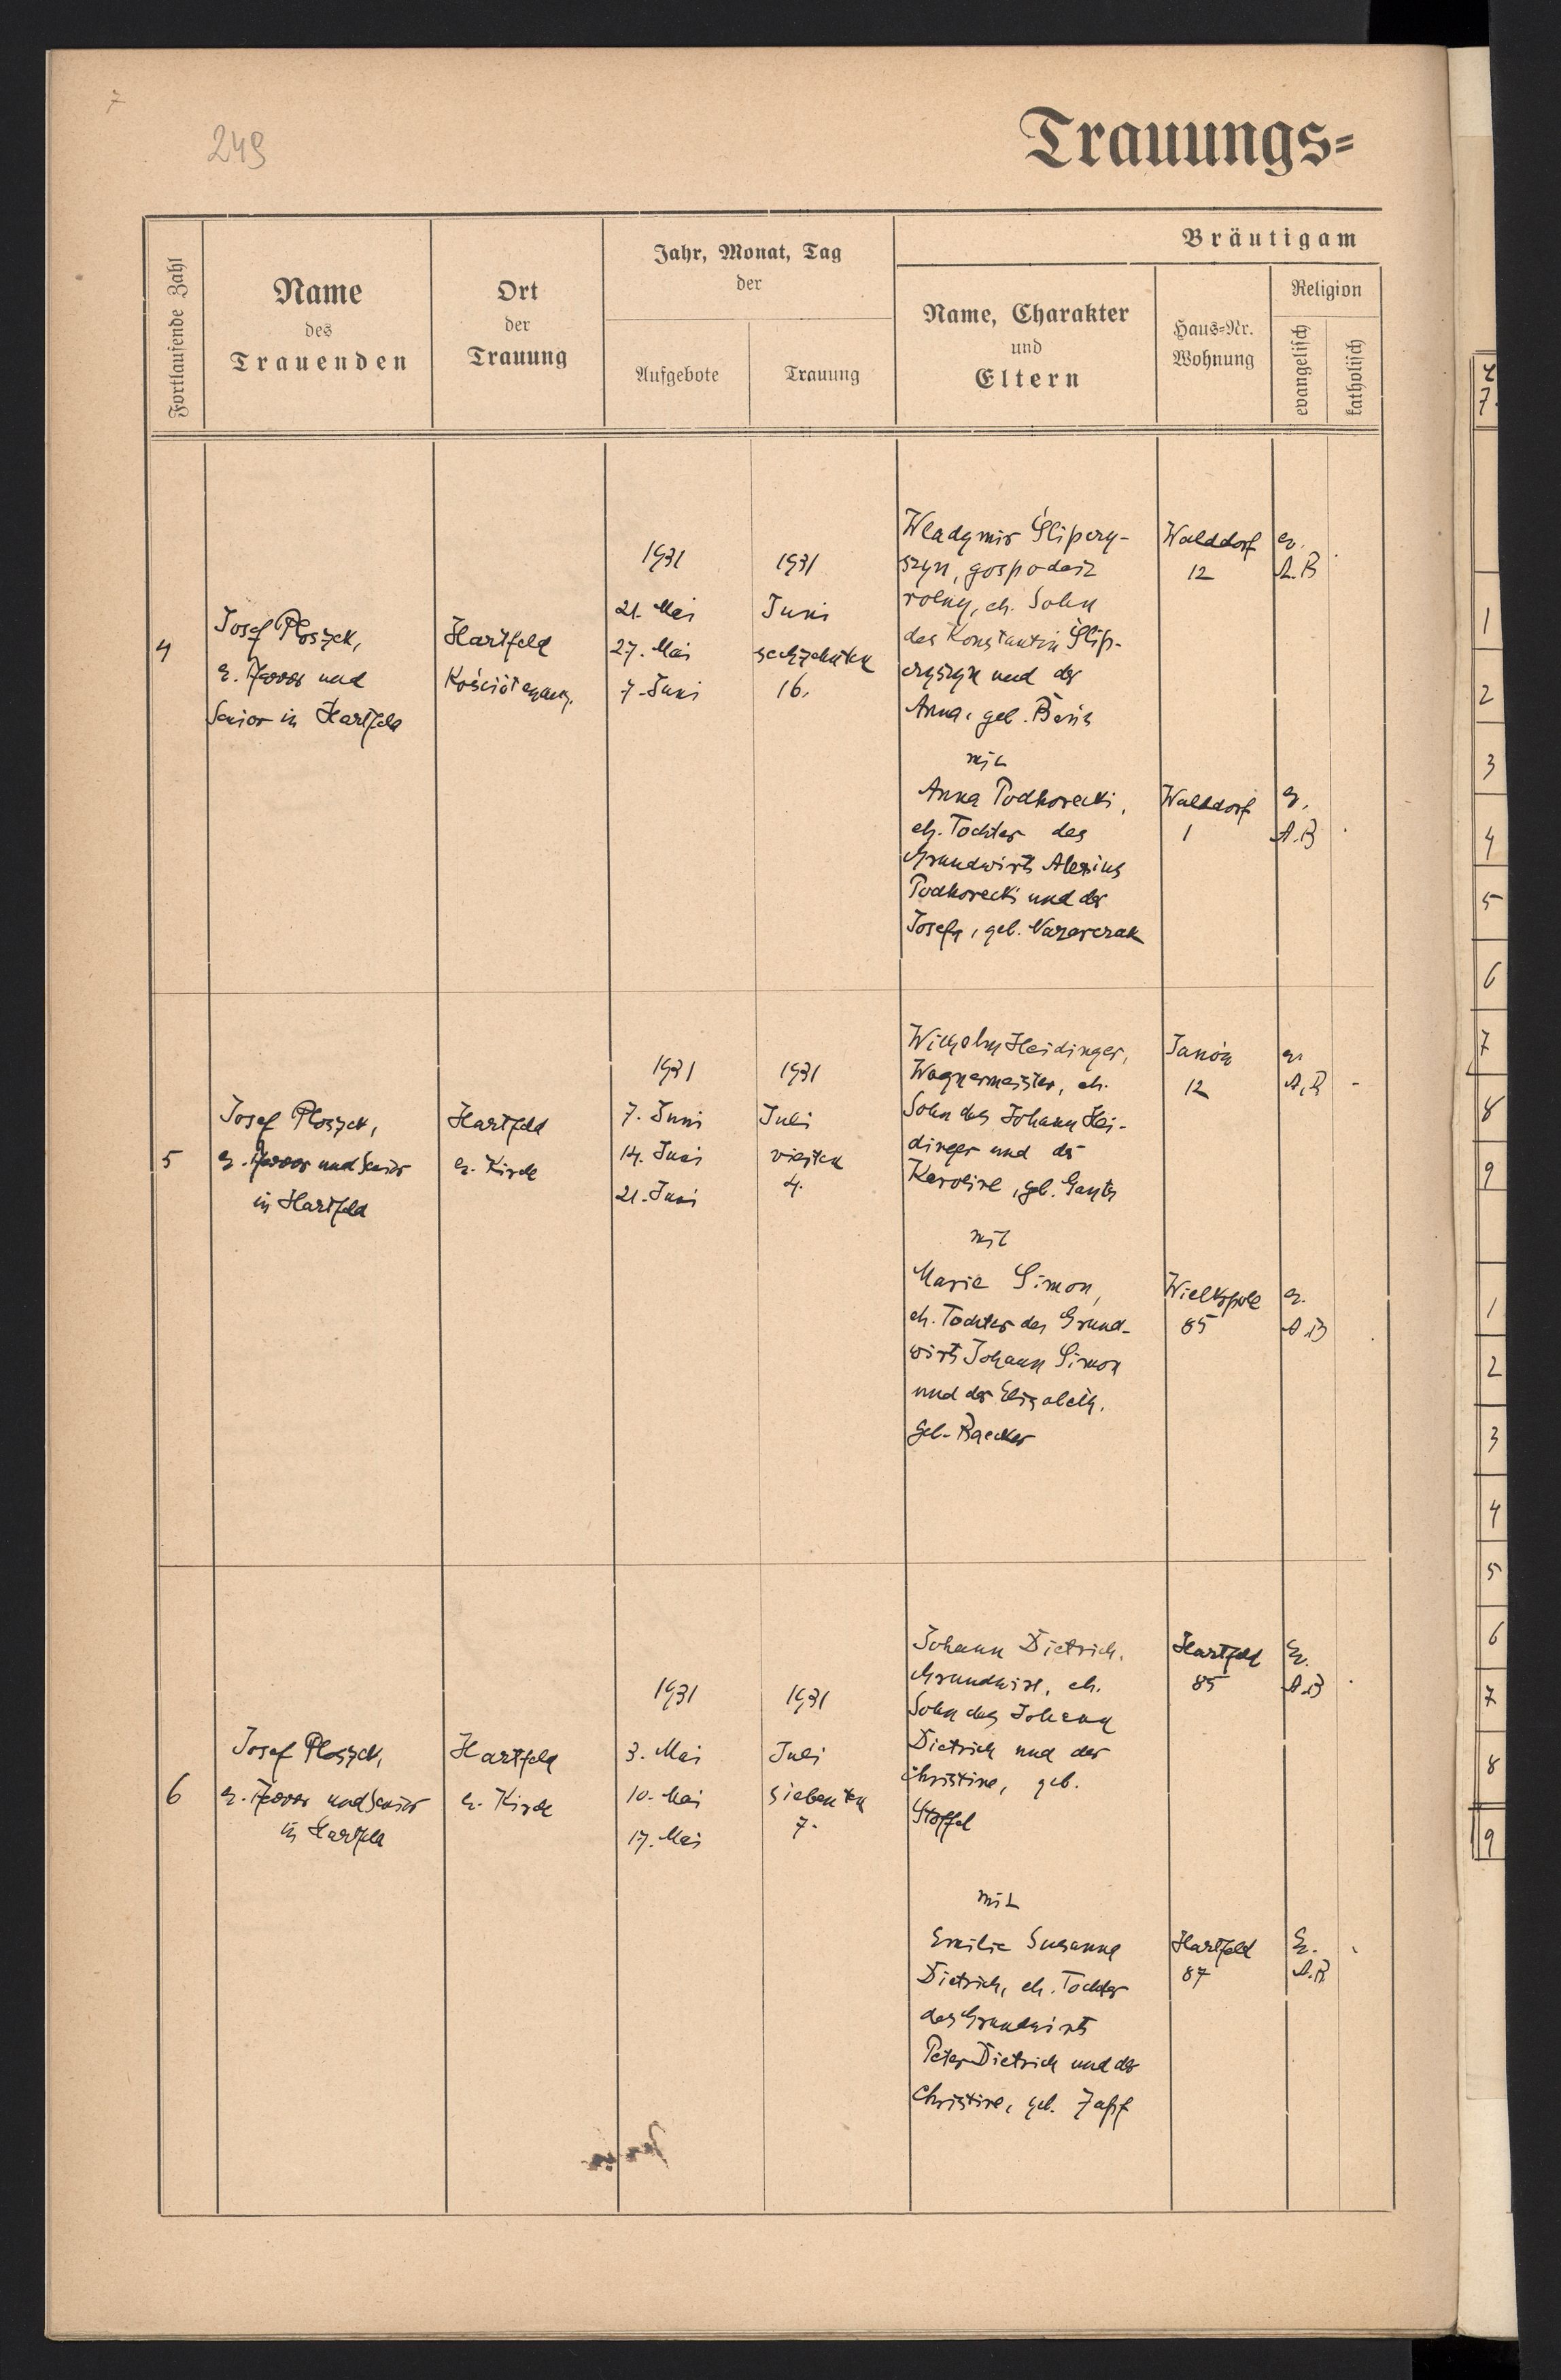 7
249
Trauungs=
Fortlaufende Zahl
Name
des
Trauenden
Ort
der
Trauung
Jahr, Monat, Tag
der
Aufgebote
Trauung
Bräutigam
Name, Charakter
und
Eltern
Haus=Nr.
Wohnung
Religion
evangelisch
katholisch
4
Josef Ploszek,
ev. Pfarrer und
Senior in Hartfeld
Hartfeld
Kościół ewang.
1931
21. Mai
27. Mai
7. Juni
1931
Juni
sechzehnten
16.
Wladymir Ślipczy-
szyn, gospodarz
rolny, eh. Sohn
des Konstantin Ślip-
czyszyn und der
Anna, geb.
Walddorf
12
ev.
A.B
mit
Anna Podhorecki,
eh. Tochter des
Grundwirts Alexius
Podhorecki und der
Josefa, geb.
Walddorf
1
ev.
A.B
5
Josef Ploszek,
ev. Pfarrer und Senior
in Hartfeld
Hartfeld
ev. Kirche
1931
7. Juni
14. Juni
21. Juni
1931
Juli
vierten
4.
Wilhelm Heidinger,
Wagnermeister, eh.
Sohn des Johann Hei-
dinger und der
Karoline, geb.
Janów
12
ev.
A.B
mit
Marie Simon,
eh. Tochter des Grund-
wirts Johann Simon
und der Elisabeth,
geb. Baecker
Wielkopole
85
ev.
A.B
6
Josef Ploszek,
ev. Pfarrer und Senior
in Hartfeld
Hartfeld
ev. Kirche
1931
3. Mai
10. Mai
17. Mai
1931
Juli
siebenten
7.
Johann Dietrich,
Grundwirt, eh.
Sohn des Johann
Dietrich und der
Christine, geb.
Stoffel
Hartfeld
85
Ev.
A.B
mit
Emilie Susanna
Dietrich, eh. Tochter
des Grundwirts
Peter Dietrich und der
Christine, geb. Zapf
Hartfeld
87
Ev.
A.B.
7.
1
2
3
4
5
6
7
8
9
1
2
3
4
5
6
7
8
9